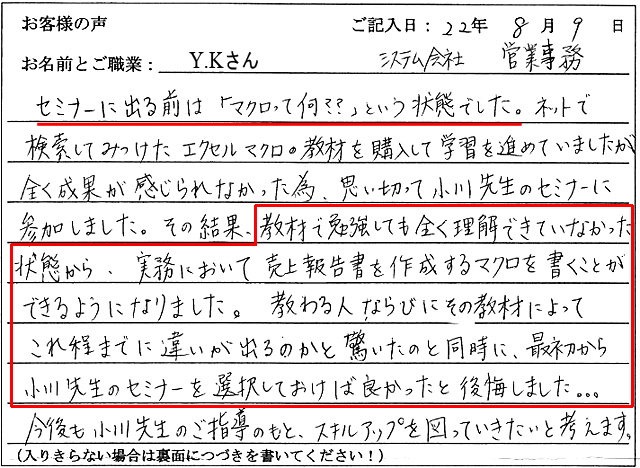 お客様の声 ご記入日：22年 8月 9日
お名前とご職業： Y.Kさん システム会社 営業事務
セミナーに出る前は「マクロって何??」という状態でした。ネットで
検索してみつけたエクセルマクロの教材を購入して学習を進めていましたが
全く成果が感じられなかった為、思い切って小川先生のセミナーに
参加しました。その結果、教材で勉強しても全く理解できていなかった
状態から、実務において売上報告書を作成するマクロを書くことが
できるようになりました。 教わる人ならびにその教材によって
これ程までに違いが出るのかと驚いたのと同時に、最初から
小川先生のセミナーを選択しておけば良かったと後悔しました...
今後も小川先生のご指導のもと、スキルアップを図っていきたいと考えます。
(入りきらない場合は裏面につづきを書いてください！)